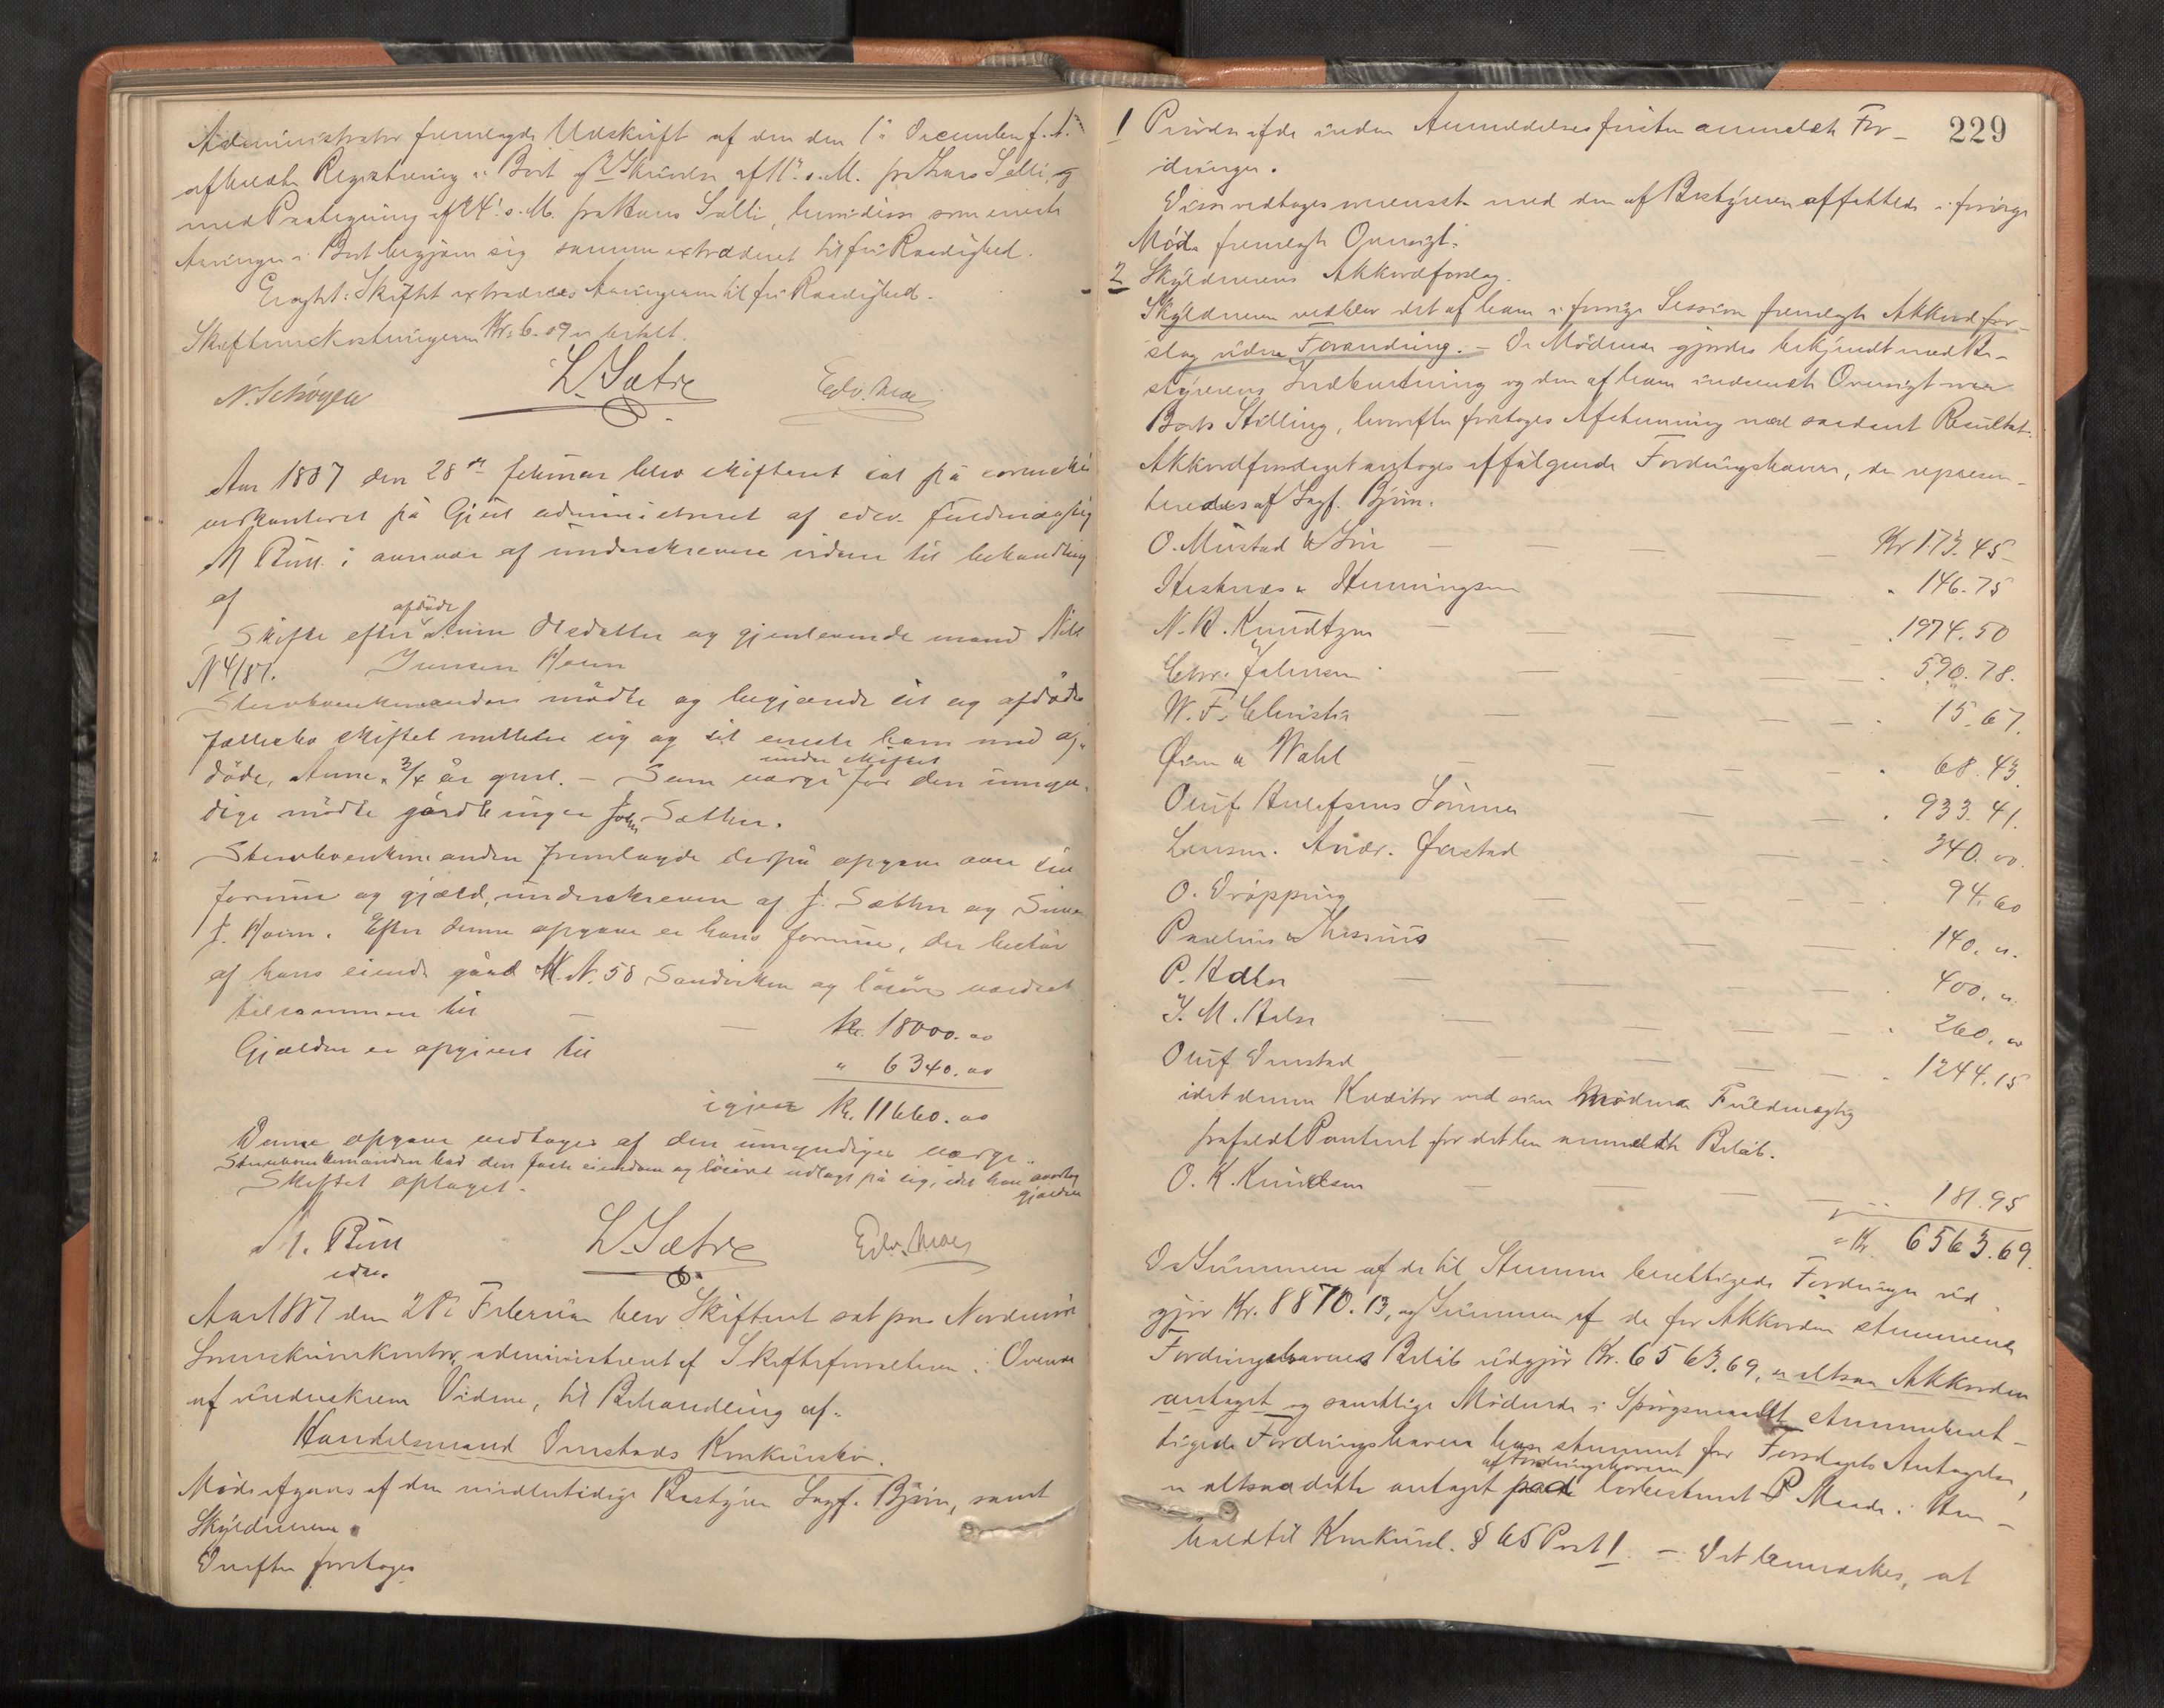 Administrator fremlagde Udskrift af den den 1ste December f. A.
afholdte Registrering i Boet og Skrivelse af 11te s. M. fra Lars Solli, og
med Paategning af 24. s. M. fra Hans Solli, hvori disse som eneste
Arvinger i Boet begjærer sig samme extraderet til fri Raadighed.
Eragtet: Skiftet extraderes Arvingerne til fri Raadighed.
Skifteomkostningerne Kr. 6.09 er betalt.
N. Schøyen L. Sætre Edv. Moe
Aar 1887 den 28de februar blev skifteret sat på sorenskri
verkontoret på Gjül administreret af edsv. fuldmægtig
M Bull i nærvær af underskrevne vidner til behandling
af
Skifte efter afdöde Anne Olsdatter og gjenlevende mand Nils
N 4/87. Jensen Hoem
Sterbboenkemanden mödte og begjærede sit og afdödes
fællesbo skiftet mellem sig og sit eneste barn med af-
döde, Anne, 3/4 år gml. – Som værge under skiftet for den umyn-
dige mödte gårdbruger John Sæther.
Sterbboenkemanden fremlagde derpå opgave over sin
formue og gjæld, underskreven af J. Sæther og Siver
J. Hoem. Efter denne opgave er hans formue, der består
af hans eiende gård M. N. 58 Sandviken og lösöre værdsat
tilsammen til – – kr. 18000.00
Gjælden er opgivet til " 6340.00
igjen kr. 11660.00
Denne opgave vedtoges af den umyndiges værge.
Sterbboenkemanden bad den faste eiendom og lösöret udlagt på sig, idet han overtog
gjælden
Skiftet optaget.
M. Bull L. Sætre Edv. Moe
edsv.
Aar 1887 den 28de Februar blev Skifteret sat paa Nordmöre
Sorenskriverkontor, administreret af Skifteforvalteren i Overvær
af underskrevne Vidner, til Behandling af
Handelsmand Omstads Konkursbo.
Möde afgaves af den midlertidige Bestyrer Sagf. Björn, samt
Skyldneren.
Derefter foretoges
229
1 Prövelse af de inden Anmeldelsesfristen anmeldte For-
dringer.
Disse vedtoges overensst. med den af Bestyreren affattede i forrige
Möde fremlagte Oversigt.
2 Skyldnerens Akkordforslag.
Skyldneren vedblev det af ham i forrige Session fremlagte Akkordfor-
slag uden Forandring. – De Mödende gjordes bekjendt med Be-
styrerens Indberetning og den af ham indsendte Oversigt over
Boets Stilling, hvorefter foretoges Afstemning med saadant Resultat.
Akkordforslaget antoges af fölgende Fordringshavere, der repræsen-
teredes af Sagf. Björn.
O. Mustad & Sön – – – Kr 173.45
Hesknes & Henningsen – " 146.75
N. H. Knudtzon – – – 1974.50
Chr. Johnsen – – – 590.78.
W. F. Christie – – – 15.67.
Öien & Wahl – – – 68.43
Oluf Aulefsens Sönner – – 933.41.
Lensm. Andr. Örstad – – 340.00.
O. Dröpping – – – 94.60
Paulius & Thesius – – – 140. "
P. Adler – – – 400. "
J. M. Halse – – – 260. "
Oluf Omstad – – – 1244.15
idet denne Kreditor ved sin mödende Fuldmægtig
frafaldt Panteret for det hele anmeldte Belöb.
O. K. Knudsen – – – 181.95
= Kr. 6563.69.
Da Summen af de til Stemme berettigede Fordringer ud-
gjör Kr. 8870.13, og Summen af de for Akkorden stemmende
Fordringshaveres Belöb udgjör Kr. 6563.69, er altsaa Akkorden
antaget og samtlige Mödende i Spörgsmaalet stemmeberet-
tigede Fordringshavere har stemmet for Forslagets Antagelse,
er altsaa dette antaget af Fordringshaverne paa lovbestemt Maade i Hen-
hold til Konkursl. § 65 Post 1. – Det bemærkes, at